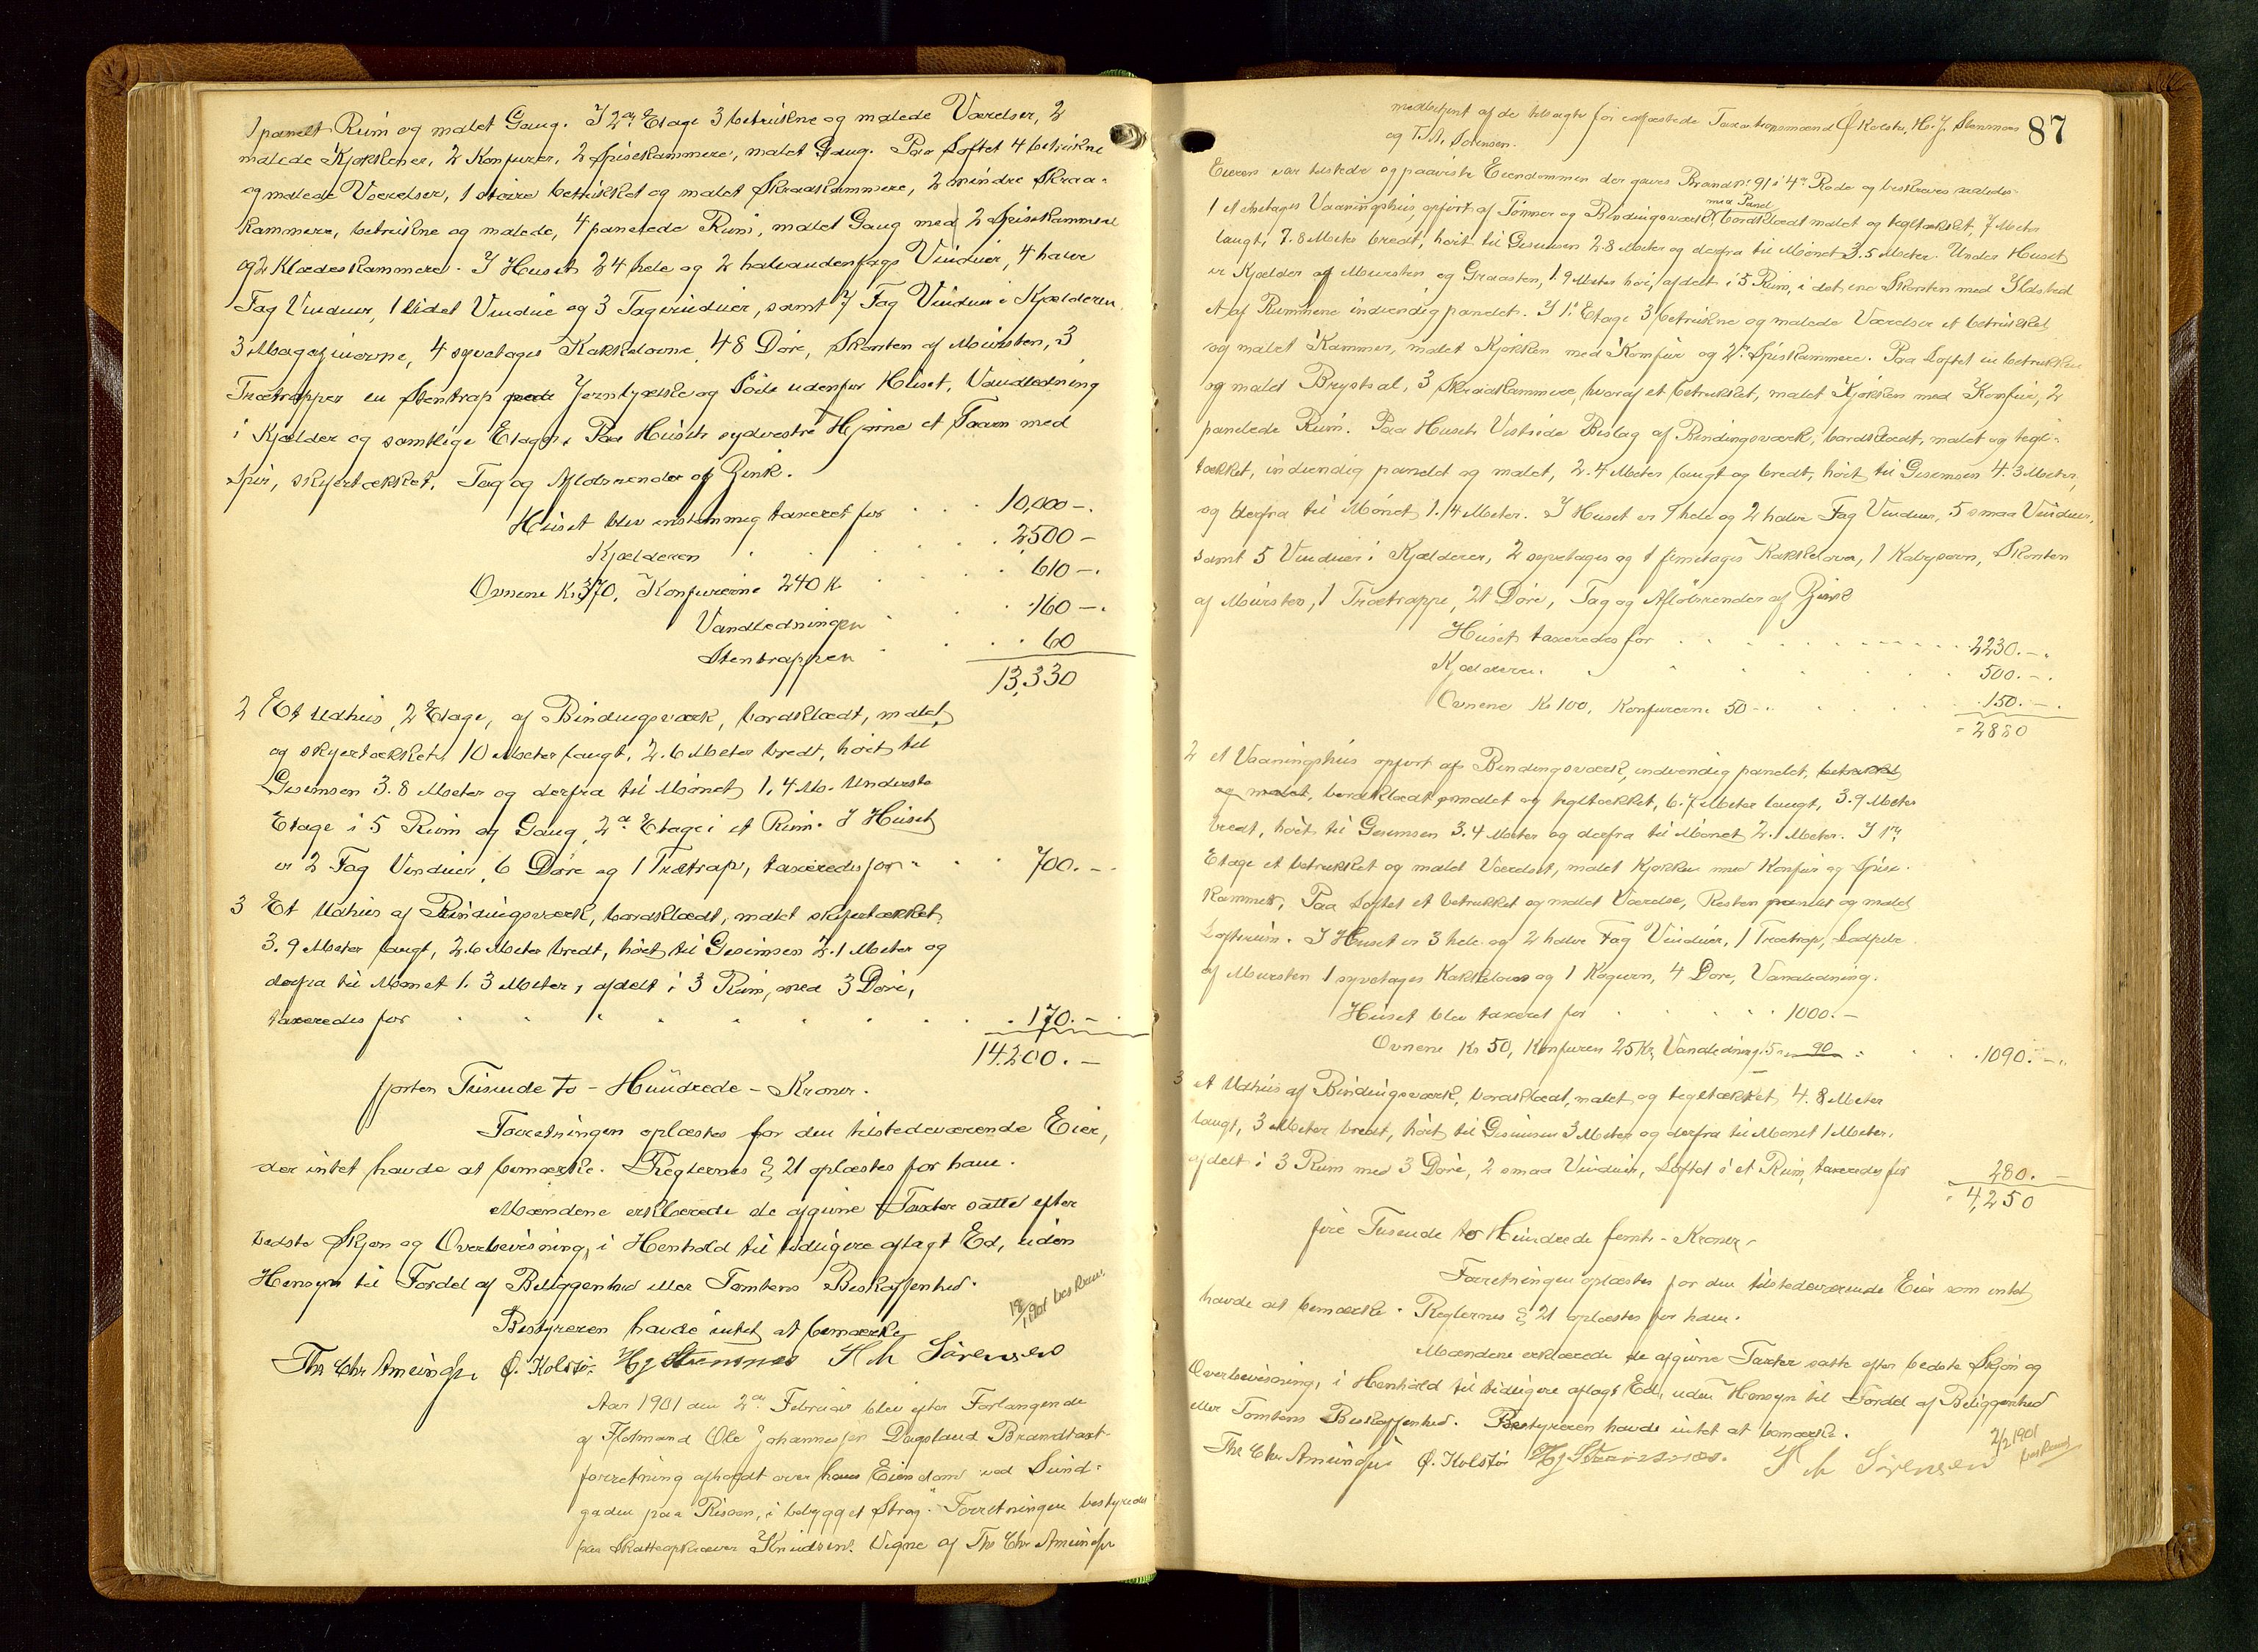 1 panelt Rum og malet Gang. I 2den Etage 3 betrukne og malede Værelser, 2
malede Kjøkkener, 2 Konfurer, 2 Spisekammere, malet Gang. Paa Loftet 4 betrukne
og malede Værelser, 1 større betrukket og malet Skraakammere, 2 mindre Skraa-
kammere, betrukne og malede, 4 panelede Rum, malet Gang med 2 Spisekammere
og 2 Klædeskammere. I Huset 24 hele og 2 halvandenfags Vinduer, 4 halve
Fag Vinduer, 1 lidet Vindue og 3 Tagvinduer, samt 7 Fag Vinduer i Kjælderen,
3 Magasinovne, 4 syvetages Kakkelovne, 48 Døre, Skorsten af Mursten, 3
Trætrapper en Stentrap med Jerntrælske og Söile udenfor Huset, Vandledning
i Kjælder og samtlige Etager. Paa Husets sydvestre Hjørne et Taarn med
Spir, skifertækket. Tag og Afløbsrender af Zink.
Huset blev enstemmig taxeret for . . . 10,000 -.
Kjælderen . . . . . 2500 -
Ovnene Kr 370, Konfurerne 240 Kr . . . . 610 -.
Vandledningen . . . 160 -.
Stentrappen . . . 60
13,330
2 Et Udhus, 2 Etage, af Bindingsværk, bordklædt, malet
og skifertækket, 10 Meter langt, 2.6 Meter bredt, høit til
Gesimsen 3.8 Meter og derfra til Mønet 1,4 M. Underste
Etage i 5 Rum og Gang, 2den Etage i et Rum. I Huset
er 2 Fag Vinduer, 6 Døre og 1 Trætrap, taxeredes for . . . 700. -
3 Et Udhus af Bindingsværk, bordklædt, malet skifertækket
3.9 Meter langt, 2.6 Meter bredt, høit til Gesimsen 2.1 Meter og
derfra til Mønet 1.3 Meter, afdelt i 3 Rum, med 3 Døre,
taxeredes for . . . . . . 170. -
14200. -
fjorten Tusende to - Hundrede - Kroner.
Forretningen oplæstes for den tilstedeværende Eier,
der intet havde at bemærke. Reglernes § 21 oplæstes for ham.
Mændene erklærede de afgivne Taxter satte efter
bedste Skjøn og Overbevisning, i Henhold til tidligere aflagt Ed, uden
Hensyn til Fordel af Beliggenhed eller Tomtens Beskaffenhed.
Bestyreren havde intet at bemærke
18/1 1901 beskrevet
Ths Chr Amundsen Ø. Kolstø. H J Stensnæs S M Sørensen
Aar 1901 den 2den Februar blev efter Forlangende
af Flotmand Ole Johannessen Dagsland Brandtaxt-
forretning afholdt over hans Eiendom ved Sund-
gaden paa Risøen, i bebygget Strøg. Forretningen bestyredes
for Skatteopkræver Knudsens Vegne af Ths Chr Amundsen
87
medbetjent af de tilsagte før edfæstede Taxationsmænd Ø Kolstø, H. J. Stensnæs
og S. M. Sørensen.
Eieren var tilstede og paaviste Eiendommen der gives Brand No 91 i 4de Rode og beskreves saaledes:
med Panel
1 et etetages Vaaningshus, opført af Tømmer og Bindingsværk, bordklædt malet og tegltækket, 7 Meter
langt, 7.8 Meter bredt, høit til Gesimsen 2.8 Meter og derfra til Mønet 3.5 Meter. Under Huset
er Kjælder af Mursten og Graasten, 1.9 Meter høi, afdelt i 5 Rum, i det ene Skorsten med Ildsted
et af Rummene indvendig panelet. I 1ste Etage 3 betrukne og malede Værelser et betrukket
og malet Kammer, malet Kjøkken med Komfur og 2de Spiskammere. Paa Loftet en betrukken
og malet Brystsal, 3 Skraakammere, hvoraf et betrukket, malet Kjøkken med Konfur, 2
panelede Rum. Paa Husets Vestside Bislag af Bindingsværk, bordklædt, malet og tegl-
tækket, indvendig panelet og malet, 2.4 Meter langt og bredt, høit til Gesimsen 4.3 Meter,
og derfra til Mønet 1.4 Meter. I Huset er 7 hele og 2 halve Fag Vinduer, 5 smaa Vinduer,
samt 5 Vinduer i Kjælderen, 2 syvetages og 1 femetages Kakkelovn, 1 Kabysovn, Skorsten
af Mursten, 1 Trætrappe, 21 Døre, Tag og Afløbsrender af Zink
Huset taxeredes for . . . . 2230. -.
Kjælderen . . . . 500. -.
Ovnene Kr 100, Konfurerne 50 -. . . . 150. -.
2880
2 et Vaaningshus opført af Bindingsværk, indvendig panelet, betrukket
og malet, bordklædt malet og tegltækket, 6.7 Meter langt, 3.9 Meter
bredt, høit til Gesimsen 3.4 Meter og derfra til Mønet 2.1 Meter. I 1ste
Etage et betrukket og malet Værelset, malet Kjøkken med Konfur og Spise-
kammer. Paa Loftet et betrukket og malet Værelse, Resten panelet og malet
Loftsrum. I Huset er 3 hele og 2 halve Fag Vinduer, 1 Trætrap, Lodpibe
af Mursten 1 syvetages Kakkelovn og 1 Kogeovn, 4 Døre, Vandledning.
Huset blev taxeret for . . . 1000. -
Ovnene Kr 50, Konfuren 25 Kr, Vandledning 15 - 90 . . . 1090. -.
3 et Udhus af Bindingsværk, bordklædt, malet og tegltækket 4.8 Meter
langt, 3 Meter bredt, høit til Gesimsen 3 Meter og derfra til Mønet 1 Meter.
afdelt i 3 Rum med 3 Døre, 2 smaa Vinduer, Loftet i et Rum, taxeredes for 280. -
4,250
fire Tusende to Hundrede femti - Kroner -
Forretningen oplæstes for den tilstedeværende Eier som intet
havde at bemærke. Reglernes § 21 oplæstes for ham.
Mændene erklærede de afgivne Taxter satte efter bedste Skjøn og
Overbevisning, i Henhold til tidligere aflagt Ed, uden Hensyn til Fordel af Beliggenhed
eller Tomtens Beskaffenhed. Bestyreren havde intet at bemærke.
2/2 1901 beskrevet
Ths Chr Amundsen Ø. Kolstø H J Stensnæs. S M Sørensen